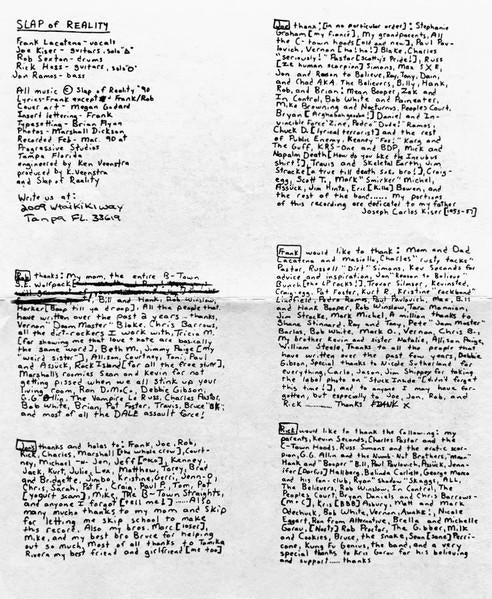 SLAP of REALITY
Frank Lacatena - vocals
Joe Kiser - guitars, solo
Rob Sexton - drums
Rick Hass - guitars, solo
Jon Ramos - bass
All music © Slap of Reality '90
Lyrics - Frank except - Frank/Rob
Cover art - Megan Godard
Insert lettering - Frank
Typesetting - Brian Flynn
Photos - Marshall Dickson
Recorded Feb - Mar. 90 at
Progressive Studios
Tampa Florida
engineered by Ken Veenstra
produced by K. Veenstra
and Slap of Reality
Write us at:
2009 Waikiki way
Tampa FL. 33619
Rob thanks: My mom, the entire B-Town
S.E. Wolfpack
Bill and Hank, Rob Winslow,
Harker [Boog till ya drop], All the people that
have written over the past 2 years - thanks,
Vernon "Doom Master" Blake, Chris Barrows,
all the dirt-rockers I work with, Tricia M.
[for showing me that love + hate are basically
the same word], Beth Mt., Jimmy Paige [my
weird sister], Allison, Courtney, Toni, Paul
and Assuck, Rock Island [for all the free stuff],
Marshall's roomies Sean and Kevin for not
getting pissed when we all stink up your
living room, Ron DiMic, Debbie Gibson,
G.G. Allin, The Vampire Lo Russ, Charles Pastor,
Bob White, Brian, Pat Foster, Travis, Bruce
and most of all the DALE assault force!
Jon thanks and holas to: Frank, Joe, Rob,
Rick, Charles, Marshall [the whole crew], Court-
ney, Michael - Jon, Jeff [Poco], Kennedy,
Jack, Kurt, Julie, La, Matthew, Torey, Brad
and Bridgette, Jimbo, Kristina, Gerri, Jenn-p,
Chris, Sarah, Pat F., Craig, Paul P., Tom, Pat
[yogurt scam], Mike, The B-Town Straights,
and anyone I forgot [tell me!].....Also
many much thanks to my mom and Skip
for letting me skip school to make
this record. Also my bros Marc [Hser],
Mike, and my best bro Bruce for helping
out so much, Most of all thanks to Tamika
Rivera my best friend and girlfriend [me too]
Joe thank: [in no particular order]: Stephanie
Graham [my fiancé], My grandparents, All
the C-town hoots [old and new], Paul Pav-
lovich, Vernon [ha! ho!] Blake, Charles
"seriously!" Pastor [Scotty's Pride!], Russ
[ze human scorpion] Simons, Max S X E,
Jon and Reason to Believe, Roy, Tony, Dain,
and Chad AKA The Believers, Billy, Hank,
Rob, and Brian: Mean Booper, Zak and
In Control, Bob White and Painéater,
Mike Browning and Nocturnus, Peoples Court,
Bryan Daniel and In-
vincible Force Zine, Pedro "Dude!" Ramos,
Chuck D. [lyrical terrorist] and the rest
of Public Enemy, Kenny "Foo:" Karg and
The Guff, KRS-One and BDP, Mick and
Napalm Death [How do you like the Incubus
shirt!], Travis and Skeletal Earth, Jim
Stracke [a true till death sub, bro!], Craig-
egg, Scott T., Mark "Smirker" Michel,
Assuck, Jim Hintz, Eric [Killa] Bowen, and
the rest of the band...... My portions
of this recording are dedicated to my father
Joseph Carlos Kiser [1953-87]
Frank would like to thank: Mom and Dad
Lacatena and Masillo, Charles "rusty tacks"
Pastor, Russell "Dirt" Simons, Kev Seconds for
advice and inspiration, Jon "Reason to Believe
Bunch [the LP rocks!], Trevor Silmser, Kevinsley
Craigegg, Pat Foster, Kurt R., Kristine "Jackband"
Lindfield, Pedro Ramos, Paul Pavlovich, Max, Bill
and Hank Booper, Rob Winslow, Tara Manion,
Jim Stracke, Mark Michel, A million thanks to
Shane Stinnard, Roy and Tony, Pete "Jam Master"
Barlas, Bob White, Mark O., Vernon, Chris B.,
My brother Kevin and sister Natalie, Allison Paige,
William Steele, Thanks to all the people that
have written over the past few years, Debbie
Gibson, Special thanks to Nicole Sutherland for
everything, Carlo, Jason, Jim Shippey for taking
the label photo on "Stuck Inside" [didn't forget
this time!], and to anyone I may have for-
gotten, but especially to Joe, Jon, Rob, and
Rick ——— Thanks FRANK X
Rick would like to thank the following: my
parents, Kevin Seconds, Charles Pastor and the
C-Town Hoods, Russ Simons and the erotic scor-
pion, G.G. Allin and the Numb Nut Brothers, "Mean"
Hank and "Booper" Bill, Paul Pavlovich, Masick, Jenn-
ifer [Dorfis] Hallberg, Balinda Carlisle, George Mano
and his fan-club, Ryan "Shadow" Skaggs, ALL,
The Believers, Rob Winslow, In Control, The
Peoples Court, Bryan Daniels and Chris Barrows -
Kris [BDB] Asbury, Matt and Mark
Odechuck, Bob White, Vernon, Awake!, Nicole
Eggert, Ron from Alternative, Brella and Michelle
Garou [Nasty] Rob Proctor, The Gibber, Milk
and Cookies, Bruce, the snake, Sean [Sane] Perri-
cone, Kung Fu Genius, the band, and a very
special thanks to Kris Garou for his believing
and support..... thanks